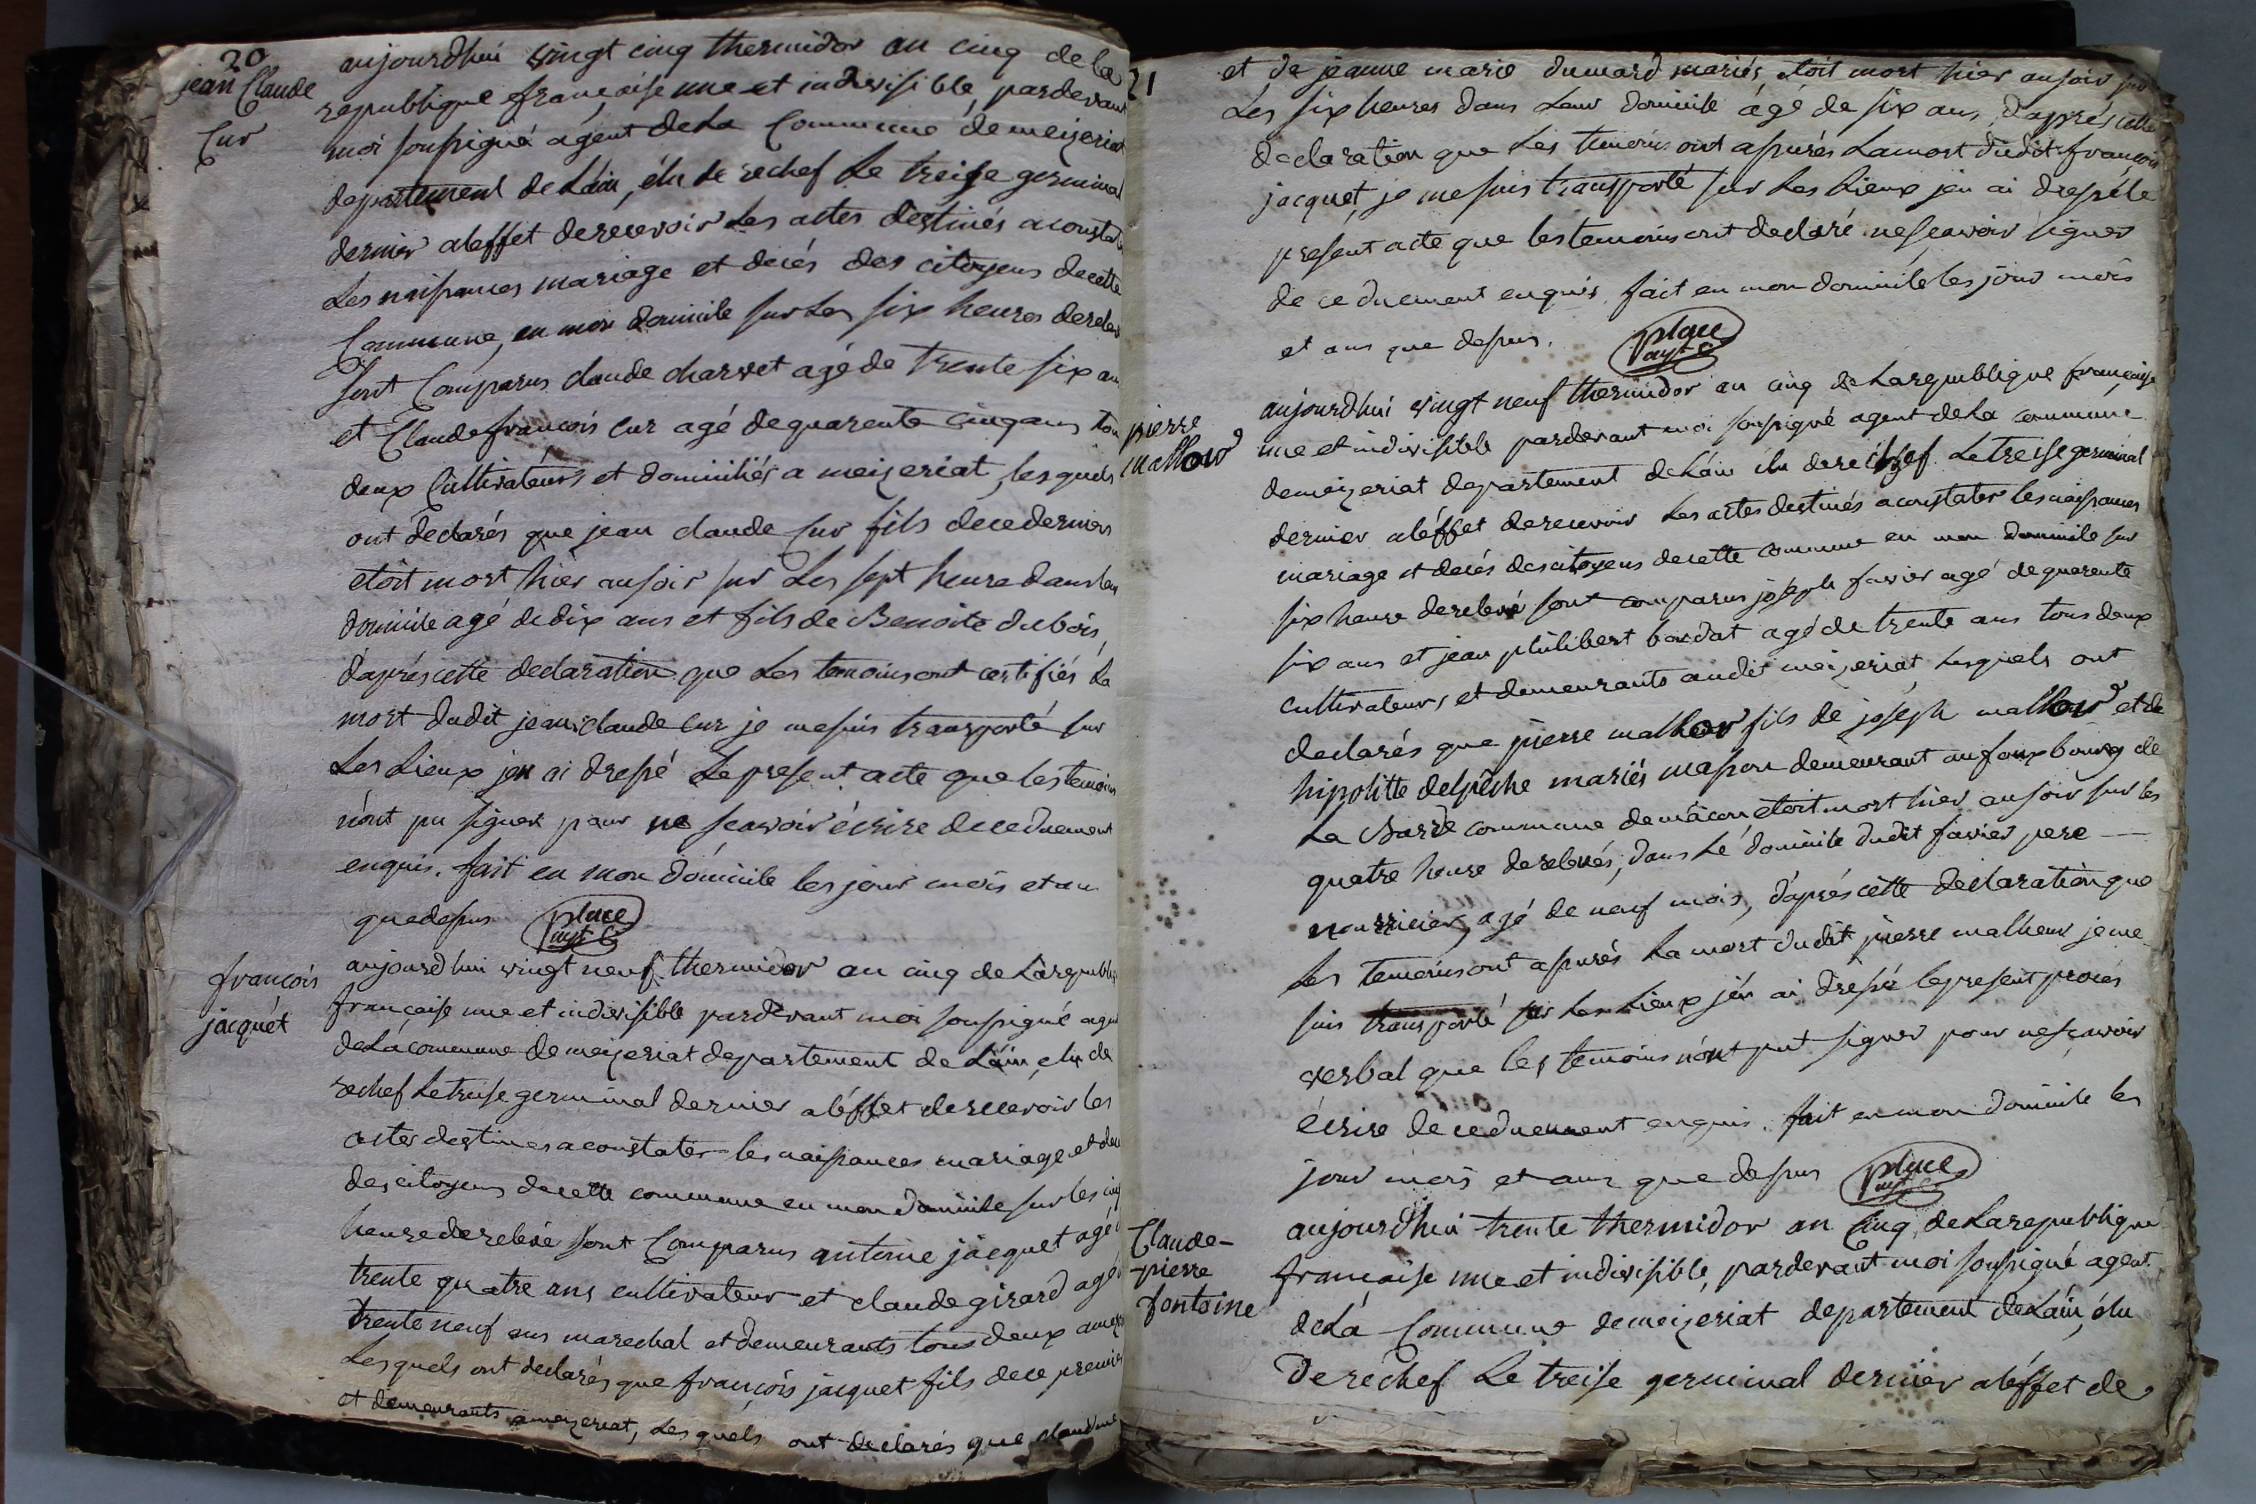 20
jean Claude
Cur
aujourdhui vingt cinq thermidor an cinq de la
republique française une et indivisible, pardevant
moi soussigné agent de La Commune de meizeriat
departement de Láin, élu de rechef Le treise germinal
dernier aleffet derecevoir Les actes destinés aconstater
Les naissances mariage et decés des citoyens decette
Commune, en mon domicile sur Les six heures derelevé
sont Comparus claude charvet agé de trente six ans
et Claude françois cur agé dequarente cinq ans tous
deux Cultivateurs et domiciliés a meizeriat, lesquels
ont déclarés que jean claude Cur fils decedernier
etoit mort hier ausoir sur Les sept heure dans leur
domicile agé de dix ans et fils de Benoite dubois,
daprés cette declaration que Les temoins ont certifiés La
mort dudit jean claude Cur je mesuis transporté sur
Les Lieux jen ai dressé Le present acte que les temoins
nónt pu signer pour ne scavoir écrire deceduement
enquis. fait en mon dómicile les jour mois et an
quedessus place agt
françois
jacquét
aujourdhui vingt neuf thermidor an cinq de Larepublique
française une et indivisible pardevant moi soussigné agent
deLa commune de meizeriat departement de Láin, élu de
rechef Le treise germinal dernier aléffet derecevoir les
actes destines aconstater les naissances mariage et decés
des citoyens decette commune en mon domicile sur les cinq
heure derelevé sont Comparus antoine jacquet agé
trente quatre ans cultivateur et claude girard agé
trente neuf ans marechal et demeurants tous deux
Lesquels ont declarés que françois jacquet fils dece premier
et demeurants ameizeriat, Les quels ont declarés que
21
et de jeanne marie dumard mariés, etoit mort hier ausoir sur
Les six heures dans Leur domicile ágé de six ans, daprés cette
declaration que Les temoins ont assurés La mort dudit françois
jacquet, je mesuis transporté sur Les Lieux jen ai dressé le
present acte que les temoins ont declaré nescavoir signer
de ce duement enquis, fait en mon domicile les jour mois
et ans que dessus. place agt
pierre
mallour
aujourdhui vingt neuf thermidor an cinq de Larepublique française
une et indivisible pardevant moi soussigné agent de La commune
demeizeriat departement de Láin élu derechef Le treise germinal
dernier aléffet derecevoir Les actes destinés aconstater les naissances
mariage et decés des citoyens decette commune en mon domicile sur
six heure derelevé sont comparus joseph favier agé dequarente
six ans et jean philibert bordat agé de trente ans tous deux
cultivateurs, et demeurants audit meizeriat Lesquels ont
declarés que pierre fils de joseph mallour et de
hipolitte delpêche mariés masson demeurant au fauxbourg de
La Barre commune de mâcon etoit mort hier ausoir sur les
quatre heure derelevés, dans Lé dómicile dudit favier pere
nourricier, agé de neuf mois, dáprés cétte declaration que
Les temoins ont assurés La mort dudit pierre malheur je me
suis transporté sur Les Lieux jén ai dressé lepresent procés
verbal que les temoins nónt put signer pour nesçavoir
écrire deceduement enquis. fait en mon domicile les
jour mois et ans que dessus place agt
Claude-
pierre
fontaine
aujourdhui trente thermidor an Cinq de Larepublique
française une et indivisible, pardevant moi soussigné agent
deLá Commune demeizeriat departement deLáin, élu
De réchef Le treise germinal dernier aléffet de